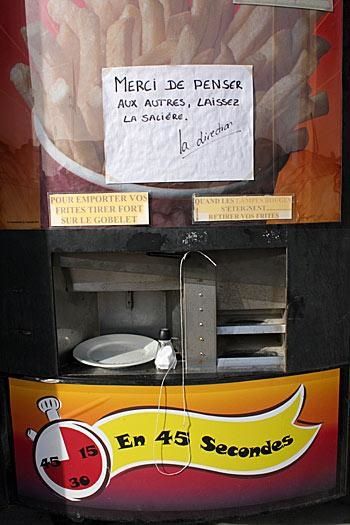 MERCI DE PENSER
AUX AUTRES, LAISSEZ
LA SALIÈRE.
la direction
POUR EMPORTER VOS
FRITES TIRER FORT
SUR LE GOBELET
QUAND LES LAMPES ROUGES
S'ETEIGNENT.......
RETIRER VOS FRITES
En 45 Secondes
45 15
30